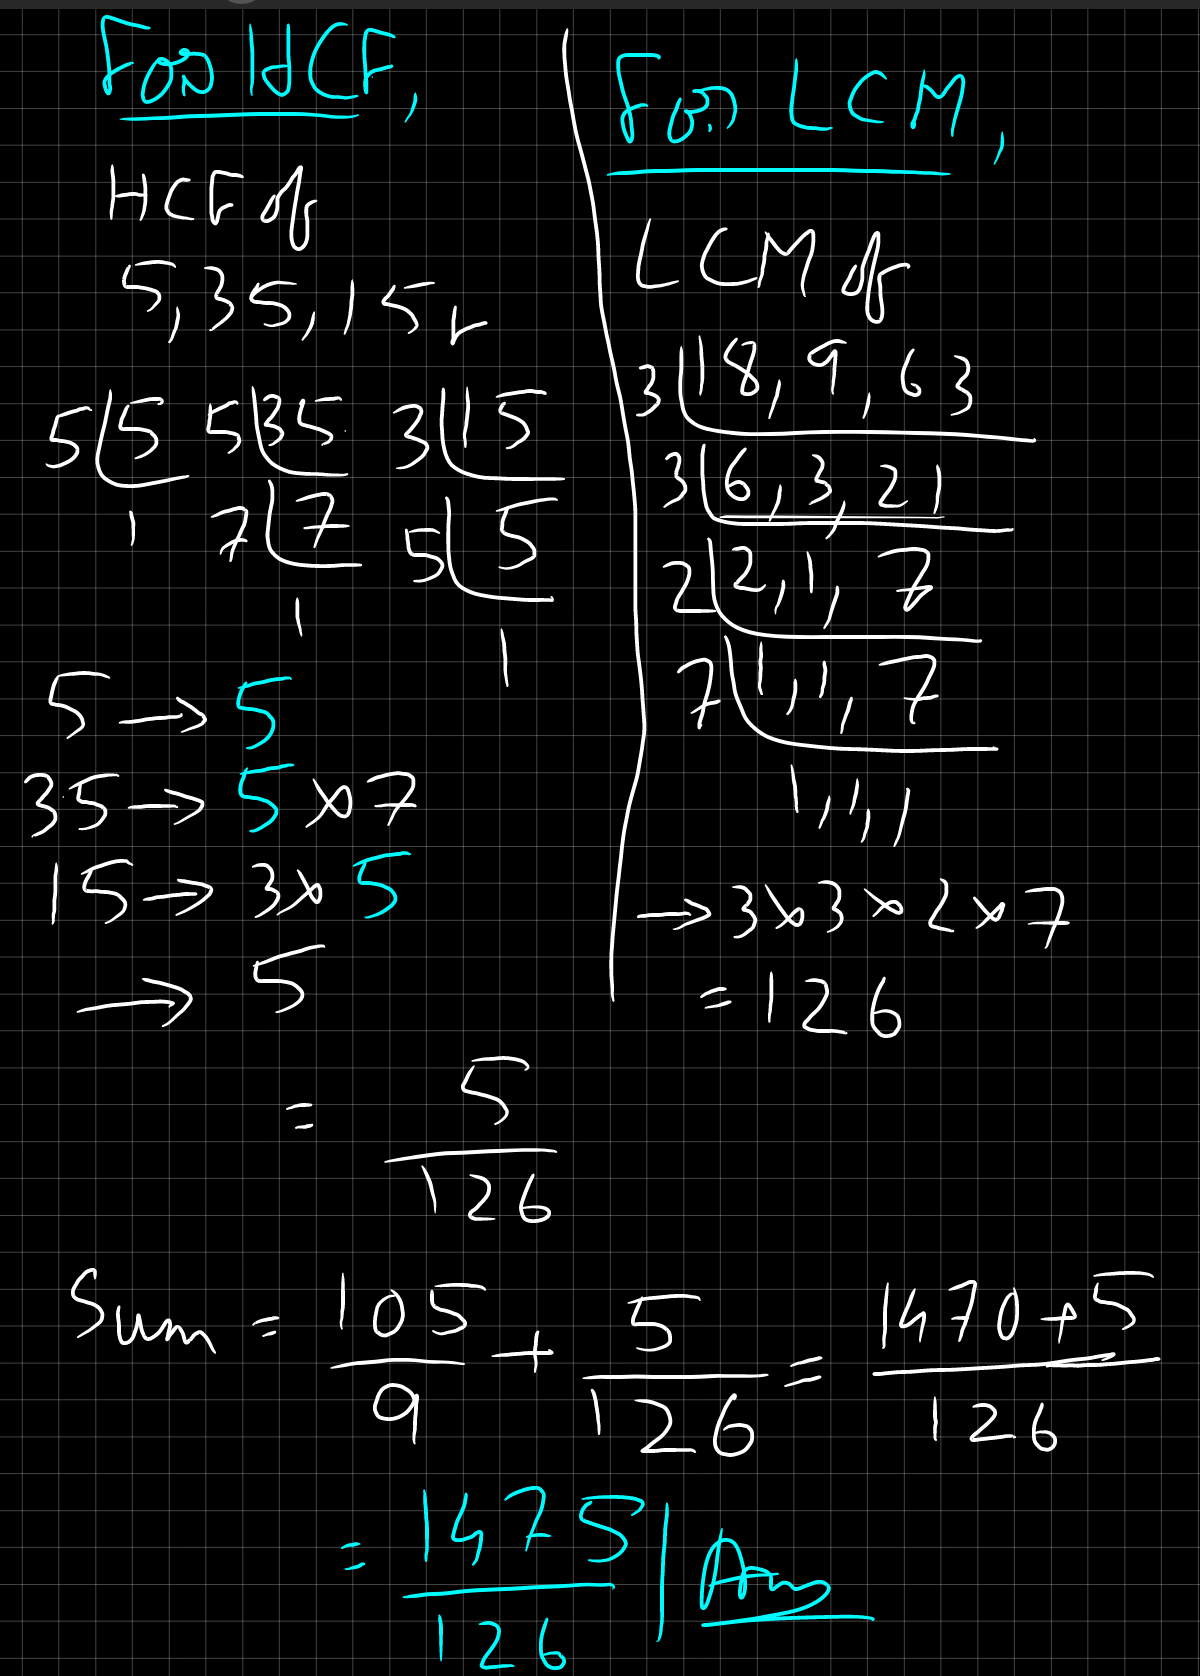 For HCF,
HCF of
5, 35, 15
5 | 5  5 | 35  3 | 15
1  7 | 7  5 | 5
1  1
5 → 5
35 → 5 × 7
15 → 3 × 5
→ 5
For LCM,
LCM of
3 | 18, 9, 63
3 | 6, 3, 21
2 | 2, 1, 7
7 | 1, 1, 7
1, 1, 1
→ 3 × 3 × 2 × 7
= 126
= 5/126
Sum = 105/9 + 5/126 = 1470 + 5/126
= 1475/126 | Ans